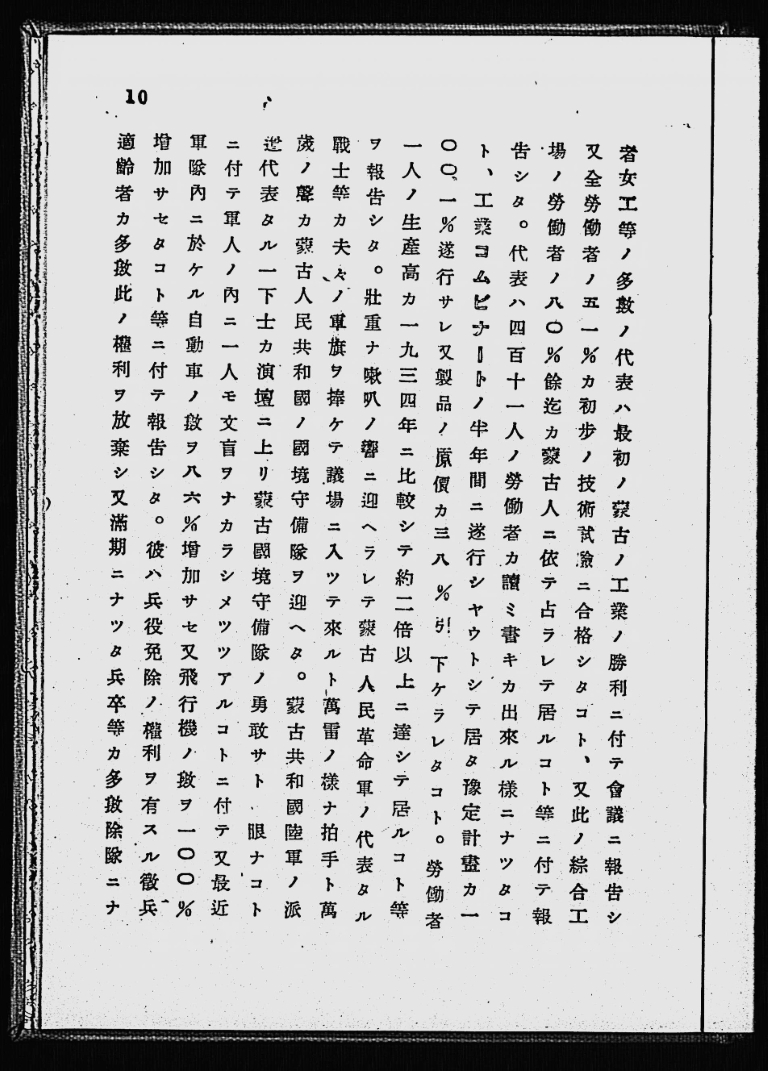 10
者女工等ノ多數ノ代表ハ最初ノ蒙古ノ工業ノ勝利ニ付テ會議ニ報告シ
又全勞働者ノ五一%カ初步ノ技術試驗ニ合格シタコト、又此ノ綜合工
場ノ勞働者ノ八〇%餘迄カ蒙古人ニ依テ占ラレテ居ルコト等ニ付テ報
告シタ。代表ハ四百十一人ノ勞働者カ讀ミ書キカ出來ル樣ニナツタコ
ト、工業コムビナートノ半年間ニ遂行シヤウトシテ居タ豫定計畫カ一
〇〇、一%遂行サレ又製品ノ原價カ三八%引下ケラレタコト。勞働者
一人ノ生產高カ一九三四年ニ比較シテ約二倍以上ニ達シテ居ルコト等
ヲ報告シタ。壯重ナ喇叭ノ響ニ迎ヘラレテ蒙古人民革命軍ノ代表タル
戰士等カ夫々ノ軍旗ヲ捧ケテ議場ニ入ツテ來ルト萬雷ノ樣ナ拍手ト萬
歲ノ聲カ蒙古人民共和國ノ國境守備隊ヲ迎ヘタ。蒙古共和國陸軍ノ派
遣代表タル一下士カ演壇ニ上リ蒙古國境守備隊ノ勇敢サト、眼ナコト
ニ付テ軍人ノ內ニ一人モ文盲ヲナカラシメツツアルコトニ付テ又最近
軍隊內ニ於ケル自動車ノ數ヲ八六%增加サセ又飛行機ノ數ヲ一〇〇%
增加サセタコト等ニ付テ報告シタ。彼ハ兵役免除ノ權利ヲ有スル徵兵
適齡者カ多數此ノ權利ヲ放棄シ又滿期ニナツタ兵卒等カ多數除隊ニナ